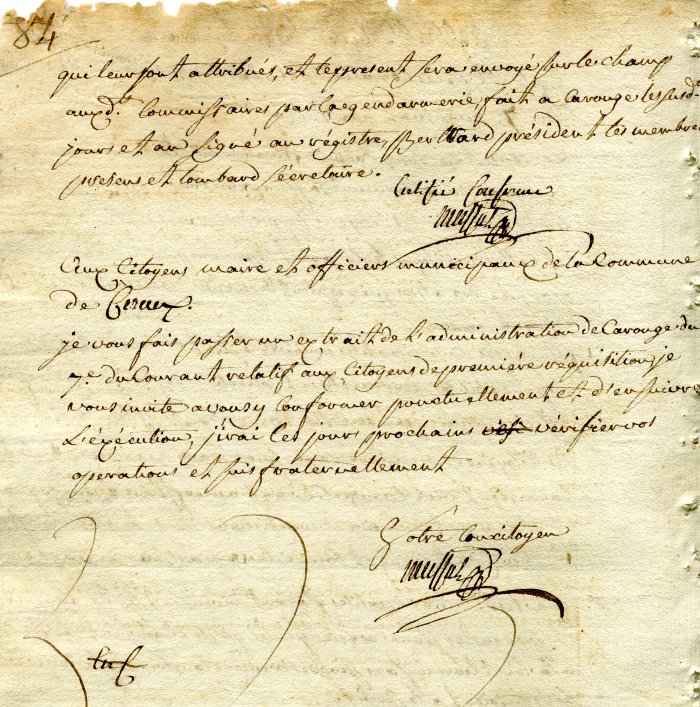 84
qui leur sont attribués, et le present sera envoyé sur le champ
auxd.ts Commissaires par la gendarmerie, fait a Carouge les susd.
jours et an signé au régistre, président les membres
presens et Lombard sécretaire.
Certifié Conforme
Aux Citoyens maire et officiers municipaux de la Commune
de
je vous fais passer un extrait de L'administration de Carouge du
7.e du Courant relatif aux Citoyens de première réquisition, je
vous invite a vous y Conformer ponctuellement et d'en suivre
L'éxécution, j'irai Ces jours prochains vérifier vos
operations et suis fraternellement
Votre Concitoyen